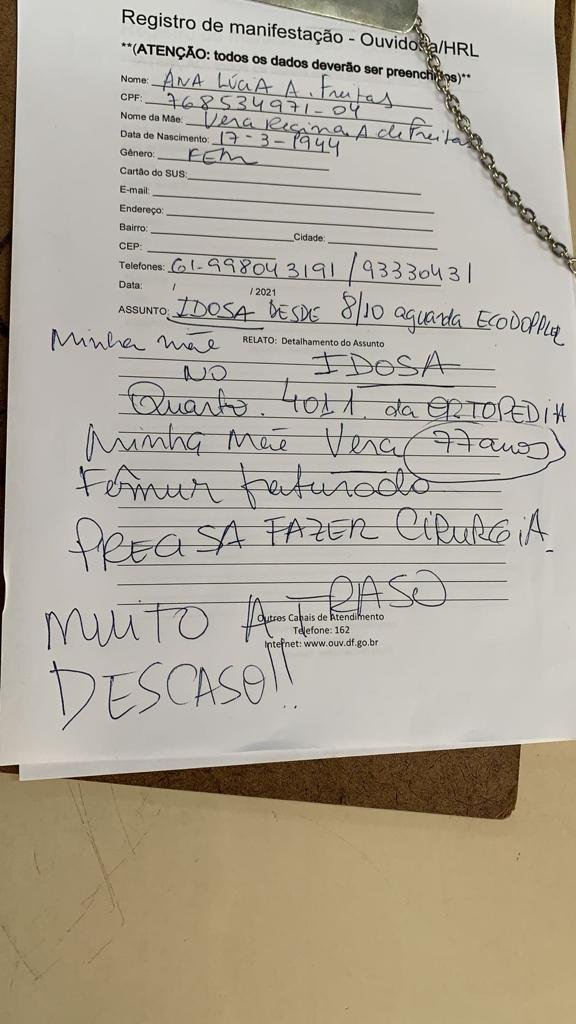 Registro de manifestação - Ouvidoria/HRL
**(ATENÇÃO: todos os dados deverão ser preenchidos)**
Nome: ANA LÚCIA A. Freitas
CPF: 768534971-04
Nome da Mãe: Vera Regina A de Freitas
Data de Nascimento: 17-3-1944
Gênero: FEM
Cartão do SUS:
E-mail:
Endereço:
Bairro: Cidade:
CEP:
Telefones: 61-998043191 / 93330431
Data: / / 2021
ASSUNTO: IDOSA DESDE 8/10 aguarda ECODOPPLER
RELATO: Detalhamento do Assunto
Minha mãe IDOSA
NO
Quarto. 4011. da ORTOPEDIA
Minha Mãe Vera 77 anos
Fêmur faturado
PRECISA FAZER CIRURGIA.
MUITO ATRASO
Outros Canais de Atendimento
Telefone: 162
Internet: www.ouv.df.gov.br
DESCASO!!